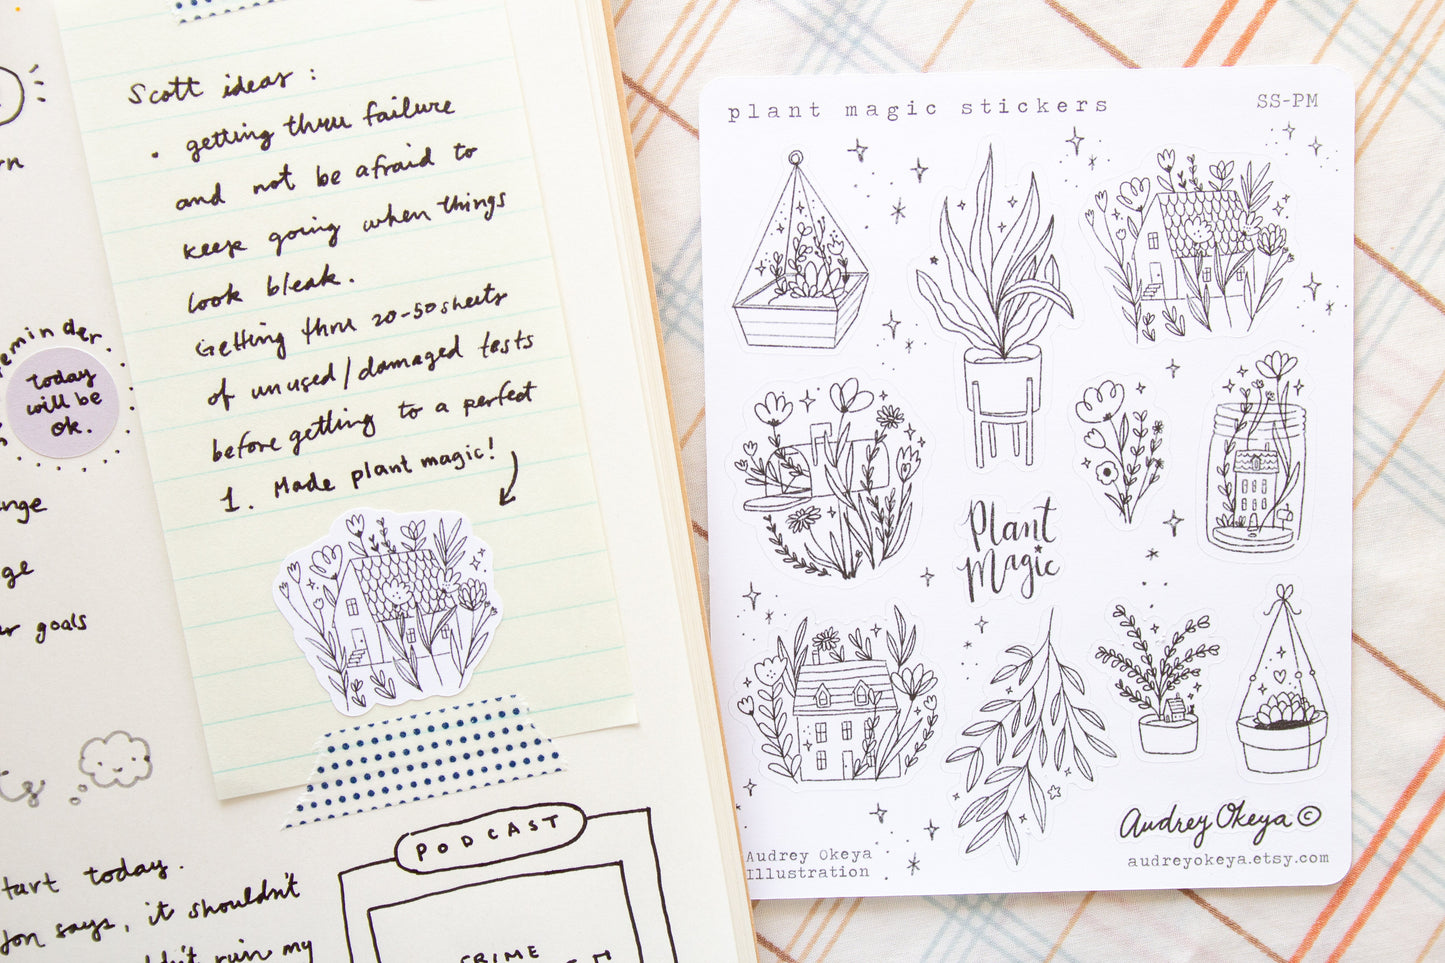 Scott ideas :
. getting thru failure
and not be afraid to
keep going when things
look bleak.
Getting thru 20-50 sheets
of unused/damaged tests
before getting to a perfect
1. Made plant magic!
reminder
today
will be
ok.
goals
PODCAST
CRIME
start today.
says, it shouldn't
ruin my
plant magic stickers
SS-PM
Plant
Magic
Audrey Okeya ©
audreyokeya.etsy.com
Audrey Okeya
Illustration